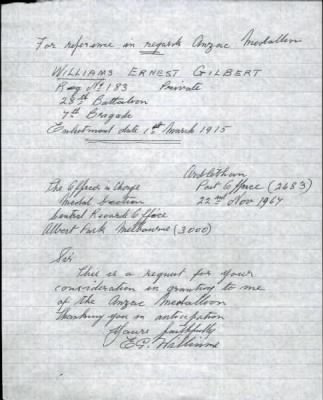 For reference in regards Anzac Medallion
WILLIAMS ERNEST GILBERT
Reg No 183 Private
28th Battalion
7th Brigade
Enlistment date 1st March 1915
Post Office (2683)
22nd Nov 1967
The Officer in Charge
Medal Section
Central Records Office
Albert Park Melbourne (3000)
Sir
This is a request for your
consideration in granting to me
of the Anzac Medallion
Thanking you in anticipation
Yours faithfully
E G Williams